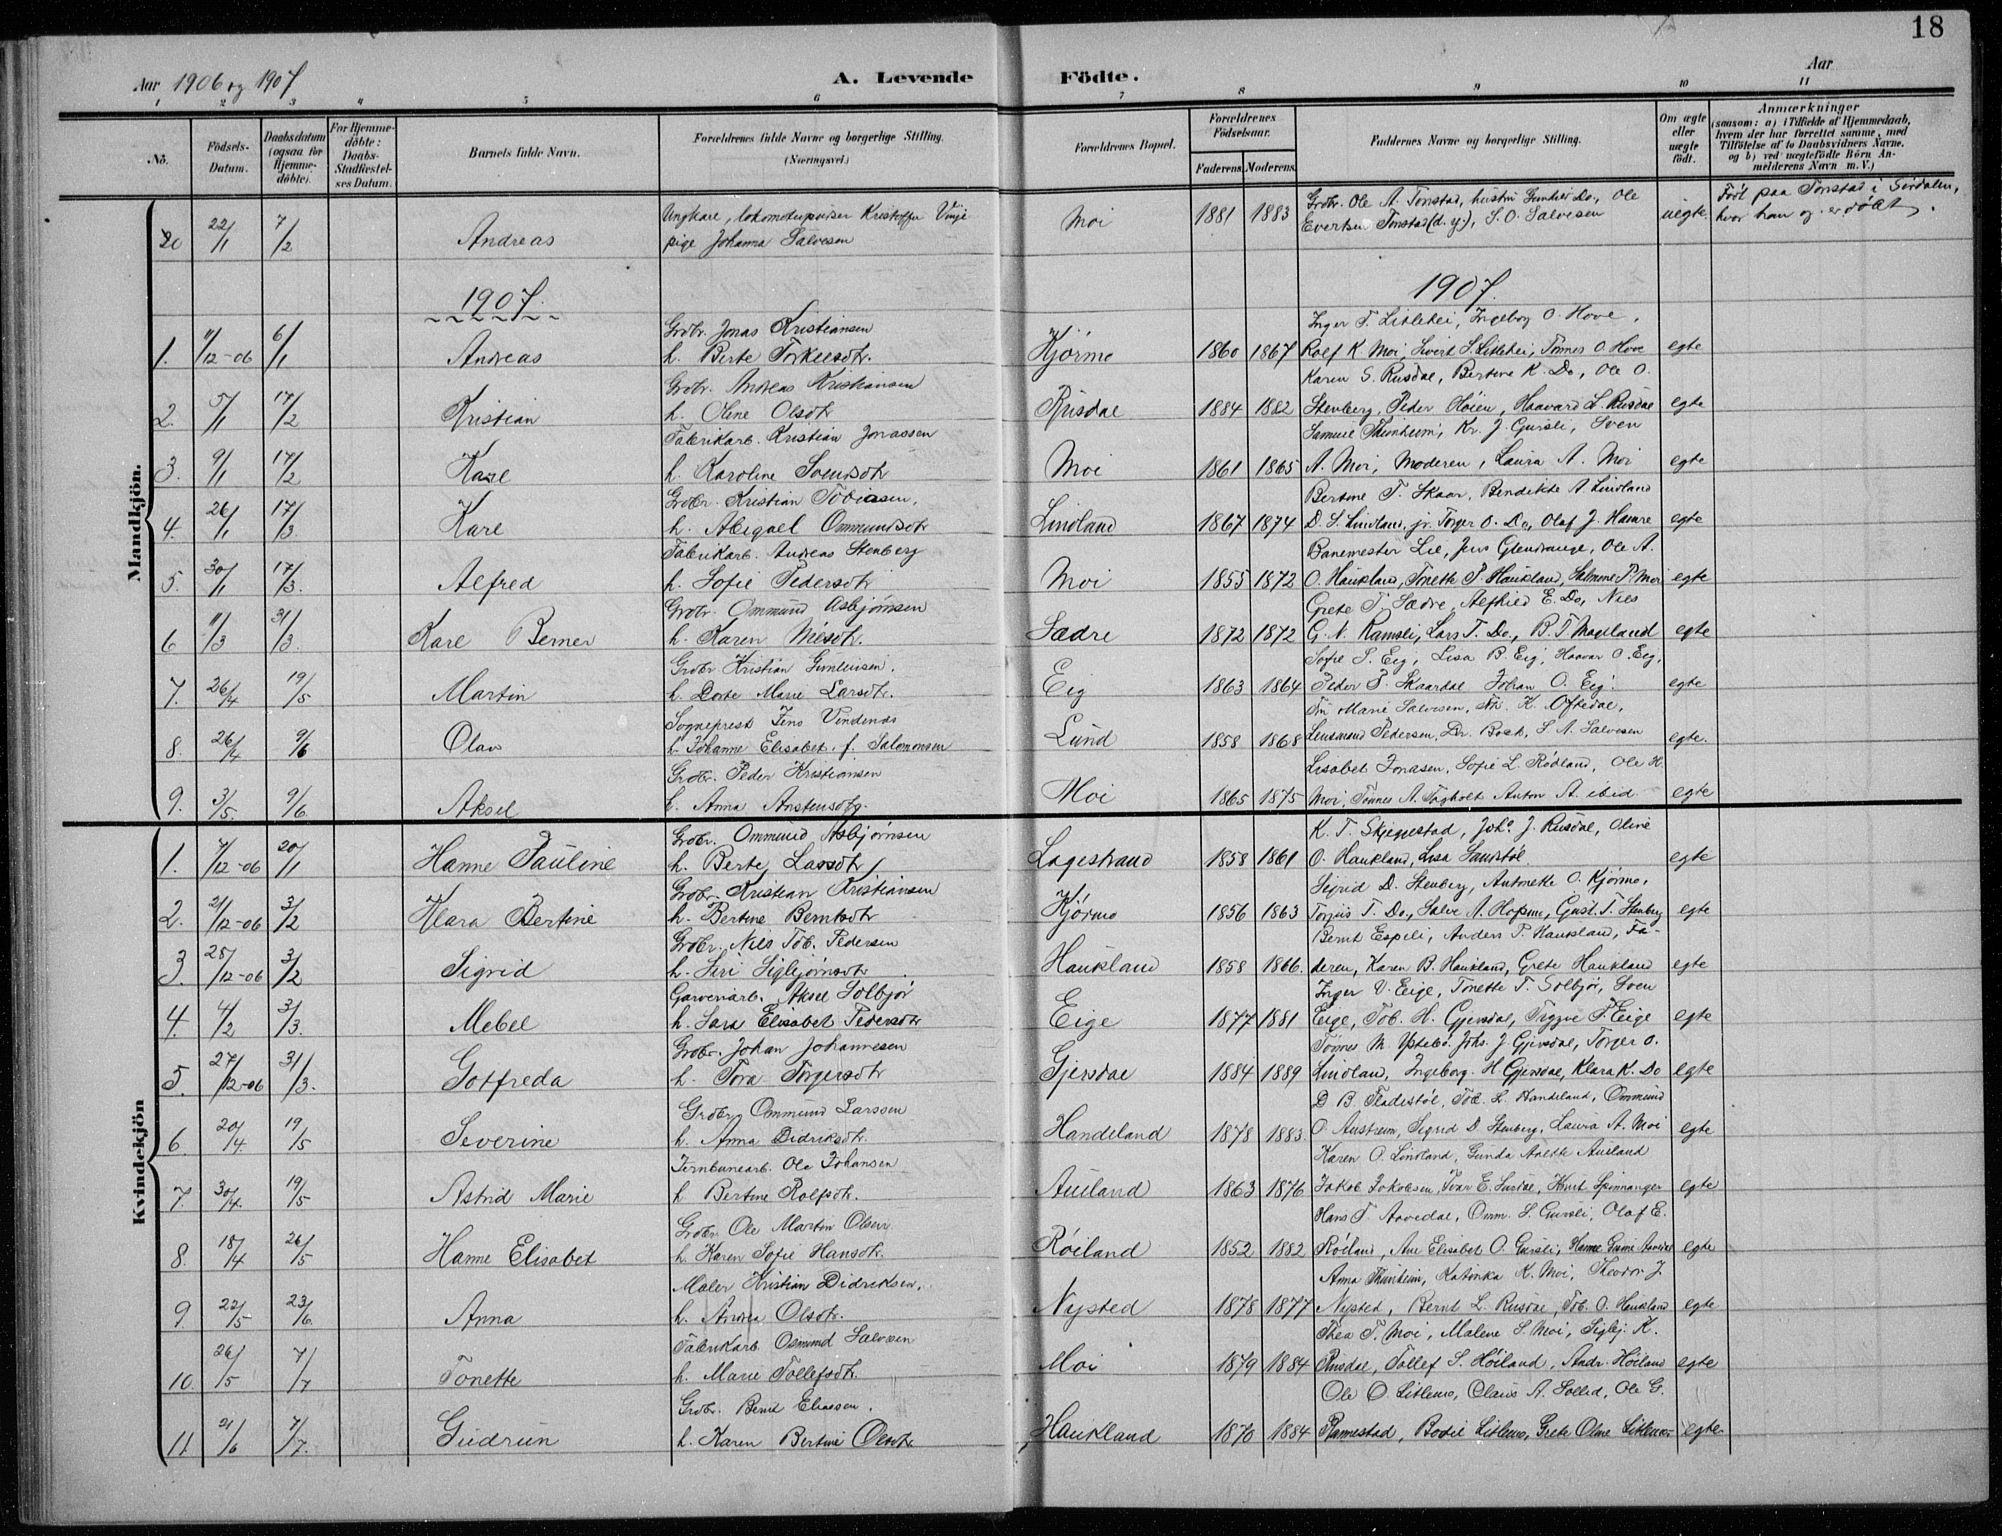 18
Aar 1906 og 1907
A. Levende Födte.
Aar
1 2 3 4 5 6 7 8 9 10 11
No.
Födsels-Datum.
Daabsdatum (ogsaa for Hjemme-döbte).
For Hjemme-döbte: Daabs-Stadfæstel-ses Datum.
Barnets fulde Navn.
Forældrenes fulde Navne og borgerlige Stilling. (Næringsvei.)
Forældrenes Bopæl.
Forældrenes Födselsaar.
Faderens. Moderens.
Faddernes Navne og borgerlige Stilling.
Om ægte eller uægte födt.
Anmærkninger
(saasom: a) i Tilfælde af Hjemmedaab, hvem der har forrettet samme, med Tilföielse af to Daabsvidners Navne, og b) ved uægtefödte Börn An-melderens Navn m. V.)
Mandkjön.
20 22/1 7/2 Andreas
Ungkarl, lokomotivpudser Kristoffer
pige Johanna Salvesen
Moi 1881 1883
Grdbr. Ole A. Tonstad, hustru Do, Ole
Evertsen Tonstad (d. y.), S. O. Salvesen
uegte
Født paa Tonstad i Sirdalen,
hvor han og er døbt.
1907.
1907.
1. 11/12-06 6/1 Andreas
Grdbr. Jonas Kristiansen
h. Berte Torkelsdtr.
Kjørmo 1860 1867
Inger T. Litlehei, Ingeborg O. Hove,
Rolf K. Moi, Sivert S. Litlehei, Tønnes O. Hove
egte
2. 5/1 17/2 Kristian
Grdbr. Andreas Kristiansen
h. Oline Olsdtr
Rusdal 1884 1882
Karen S. Rusdal, Bertine K. Do, Ole O.
Stenberg, Peder Høien, Haavard L. Rusdal
egte
3. 9/1 17/2 Karl
Fabrikarb. Kristian Jonassen
h. Karoline Svensdtr
Moi 1861 1865
Samuel Thunheim, Kr. J. Gursli, Sven
A. Moi, Moderen, Laura A. Moi
egte
4. 26/1 17/3 Karl
Grdbr. Kristian Tobiasen.
h. Abigael Ommundsdtr
Lindland 1867 1874
Bertine T. Skaar, Bendikte A. Lindland
D. S. Lindland, jr. Torger O. Do, Olaf J. Hamre
egte
5. 30/1 17/3. Alfred
Fabrikarb. Andreas Stenberg
h. Sofie Pedersdtr
Moi 1855 1872
Banemester Lie, Jens Glendrange, Ole A.
O. Haukland, Tonette P. Haukland, Salmine P. Moi
egte
6 11/3 31/3. Karl Berner
Grdbr. Ommund Asbjørnsen
h. Karen
Sædre 1872 1872
Grete T. Sædre, Alfhild E. Do, Niels
G. N. Ramsli, Lars T. Do, B. T. Mageland
egte
7. 26/4 19/5 Martin
Grdbr Kristian
h. Dorte Marie Larsdtr.
Eig 1863 1864
Sofie S. Eig, Lisa B. Eig, Haavar O. Eig,
Peder P. Skaardal Johan O. Eig.
egte
8 26/4 9/6 Olav
Sogneprest Jens Vindenæs
h. Johanne Elisabet. f. Salomonsen
Lund 1858 1868
Frk Marie Salvesen, K. Oftedal,
Lensmand Pedersen, Dr. Bock, S. A. Salvesen
egte.
9. 3/5. 9/6. Aksel
Grdbr. Peder Kristiansen
h. Anna
Moi 1865 1875
Lisabet Jonasen, Sofie L. Rødland, Ole H.
Moi, Tønnes A. Anton A. ibid
egte
Kvindekjön
1. 7/12-06 20/1 Hanne Pauline
Grdbr. Ommund Asbjørnsen
h. Berte Larsdtr
Lagestrand 1858 1861
K. T. Skjeggestad, Johs. J. Rusdal, Oline
O. Haukland, Lisa Sandstøl.
egte
2. 21/12-06 3/2 Klara Bertine
Grdbr. Kristian Kristiansen
h. Bertine Berntsdtr
Kjørmo 1856 1863
Sigrid D. Stenberg, Antonette O. Kjørmo,
Torgiis T. Do, Salve A. Hopsmo, Gust. T. Stenberg
egte
3 28/12-06 3/2 Sigrid
Grdbr. Niels Tob. Pedersen
h. Siri Sigbjørnsdtr
Haukland 1858 1866.
Bernt Espeli, Anders P. Haukland, Fa-
deren, Karen B. Haukland, Grete Haukland
egte
4. 4/2 3/3. Mebel
Garveriarb. Aksel Solbjør
h. Sara Elisabet Pedersdtr
Eige 1877 1881
Inger V. Eige, Tonette T. Solbjør, Sven
Eige, Tob. H. Gjersdal, Tryggve F. Eige
egte
5. 27/12-06 31/3. Gotfreda
Grdbr. Johan Johannesen
h. Tora Torgersdtr
Gjersdal 1884 1889
Tønnes M. Ystebø, Johs. J. Gjersdal, Torger O.
Lindland, Ingeborg H Gjersdal, Klara K. Do
egte
6 20/4. 19/5 Severine
Grdbr Ommund Larssen
h. Anna Didriksdtr.
Handeland 1878 1883.
D B. Fladestøl, Tob. L. Handeland, Ommund
O. Austreim, Sigrid D Stenberg, Laura A. Moi
egte
7. 30/4. 19/5 Astrid Marie
Jernbanearb. Ole Johansen
h Bertine Rolfsdtr.
Aueland 1863 1876
Karen O. Lindland, Gunda Anette Aueland
Jakob Jakobsen, Ivar E. Surdal, Knut Spinnanger
egte
8. 18/4 26/5 Hanne Elisabet
Grdbr Ole Martin Olsen
h. Karen Sofie Hansdtr.
Røiland 1852 1882
Hans T. Aavedal, Omm. S. Gursli, Olaf E.
Røiland, Ane Elisabet O. Gursli, Hanne
egte
9 22/5 23/6. Anna
Maler Kristian Didriksen,
h. Andrea Olsdtr.
Nysted 1878 1877
Anna Thunheim, Katinka K. Moi, Theodor J.
Nysted, Bernt L. Rusdal, Tob. O. Haukland
egte
10. 26/5 7/7 Tonette
Fabrikarb Osmund Salvesen
h. Marie Tollefsdtr.
Moi 1879 1884
Thea T. Moi, Malene S. Moi, Sigbj. K.
Rusdal, Tollef S. Høiland, Andr. Høiland
egte
11 21/6 7/7. Gudrun
Grdbr. Bernt Eliassen.
h. Karen Bertine Olsdtr.
Haukland 1870 1884
Ole O. Litlemo, Claus A. Solled, Ole G.
Ramestad, Bodil Litlemo, Grete Oline Litlemo
egte